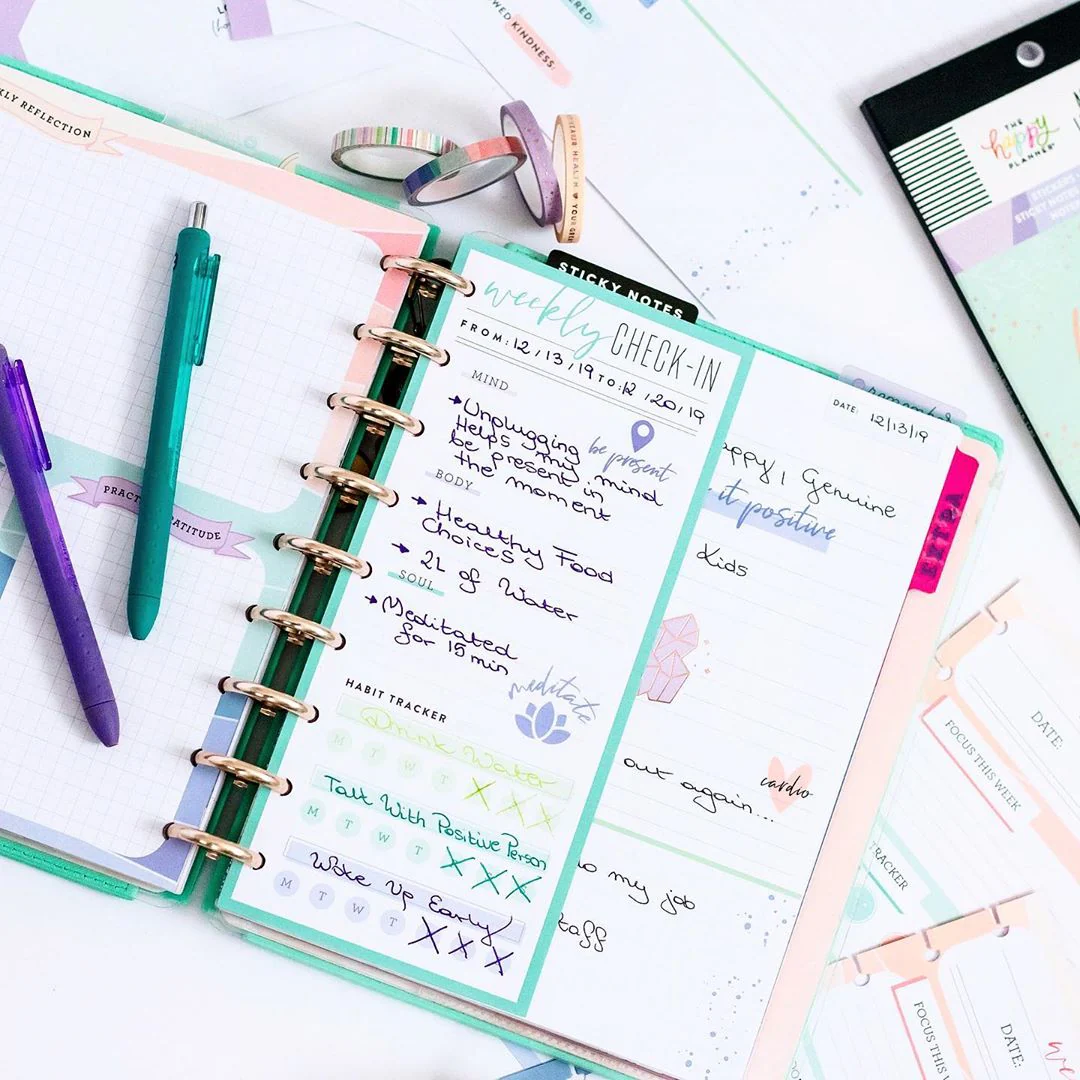 KLY REFLECTION
PRACT
ATITUDE
WED KINDNESS:
ERED:
HEALTH ♥ YOUR
THE
happy
PLANNER
STICKERS
STICKY NOTES
STICKY NOTES
weekly CHECK-IN
FROM: 12/13/19 TO: 12/20/19
MIND
→Unplugging
Helps my mind
be present in
the moment
be present
BODY
→Healthy Food
Choices
→ 2L of Water
SOUL
→Meditated
for 15 min
meditate
HABIT TRACKER
Drink Water
M T W T X X X
Talk With Positive Person
M T W T X X X
Wake Up Early
M T W T X X X
DATE: 12/13/19
appy, Genuine
it positive
Kids
EXTRA
out again...
cardio
o my job
taff
DATE:
FOCUS THIS WEEK
TRACKER
DATE:
FOCUS THIS
we